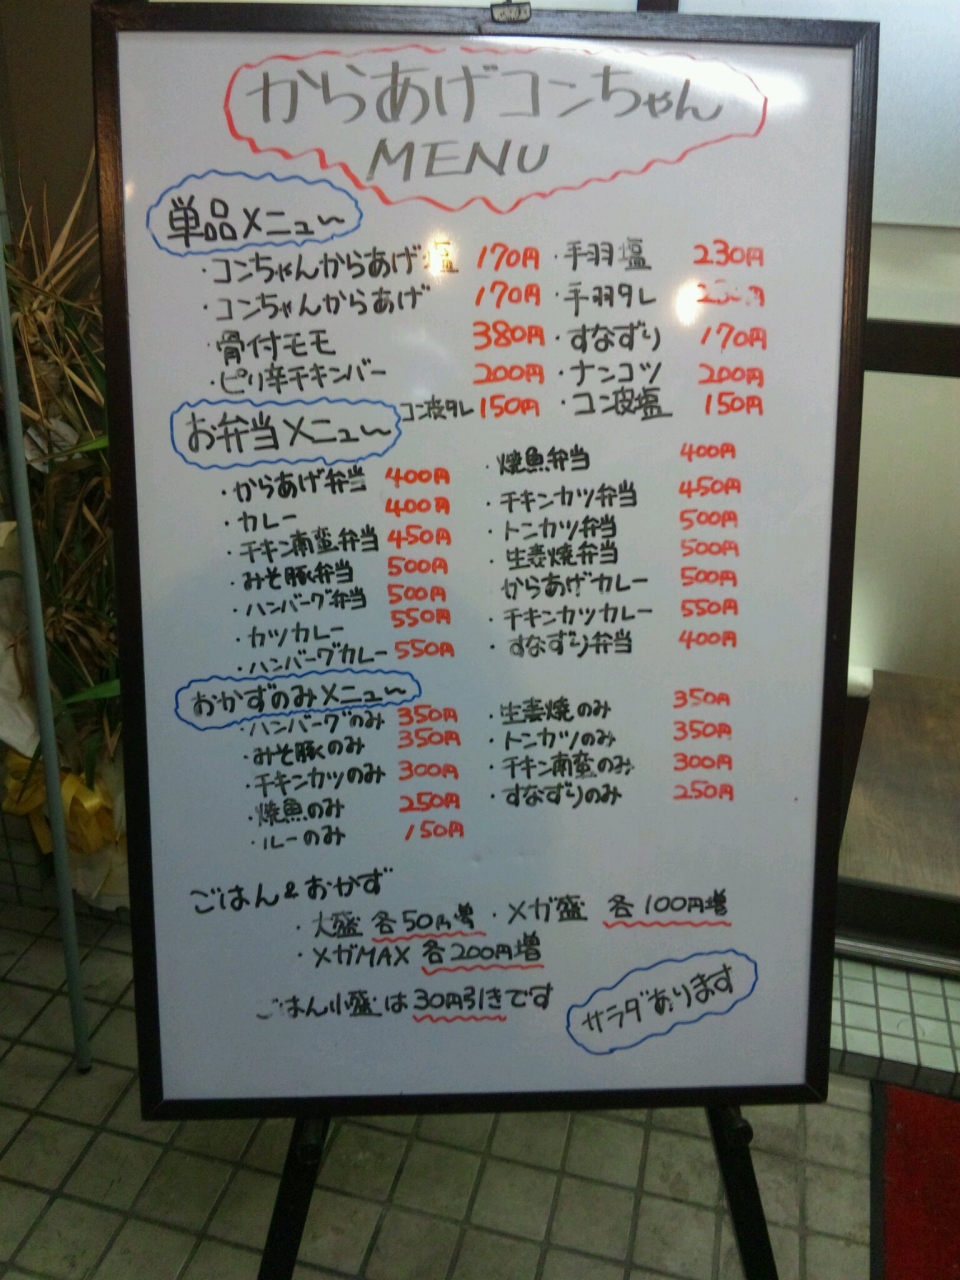 からあげコンちゃん
MENU
単品メニュー
・コンちゃんからあげ塩 170円 ・手羽塩 230円
・コンちゃんからあげ 170円 ・手羽タレ
・骨付モモ 380円 ・すなずり 170円
・ピリ辛チキンバー 200円 ・ナンコツ 200円
コン皮タレ 150円 ・コン皮塩 150円
お弁当メニュー
・からあげ弁当 400円 ・焼魚弁当 400円
・カレー 400円 ・チキンカツ弁当 450円
・チキン南蛮弁当 450円 ・トンカツ弁当 500円
・みそ豚弁当 500円 ・生姜焼弁当 500円
・ハンバーグ弁当 500円 からあげカレー 500円
・カツカレー 550円 ・チキンカツカレー 550円
・ハンバーグカレー 550円 ・すなずり弁当 400円
おかずのみメニュー
・ハンバーグのみ 350円 ・生姜焼のみ 350円
・みそ豚のみ 350円 ・トンカツのみ 350円
・チキンカツのみ 300円 ・チキン南蛮のみ 300円
・焼魚のみ 250円 ・すなずりのみ 250円
・ルーのみ 150円
ごはん&おかず
・大盛 各50円増 ・メガ盛 各100円増
・メガMAX 各200円増
ごはん小盛は30円引きです
サラダあります